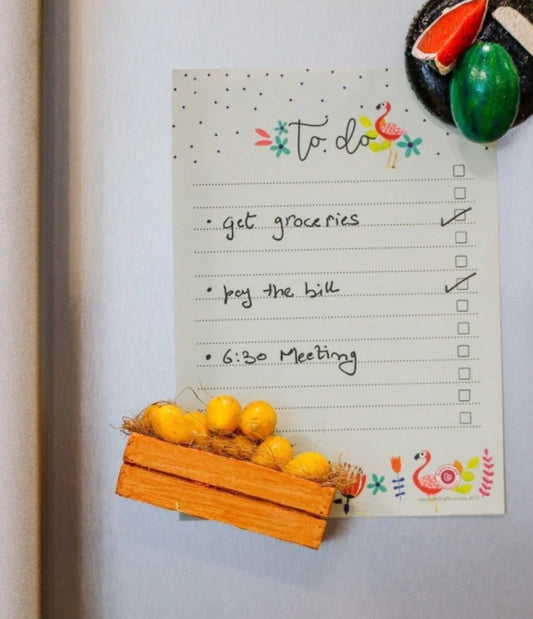 to do
• get groceries
• pay the bill
• 6:30 Meeting